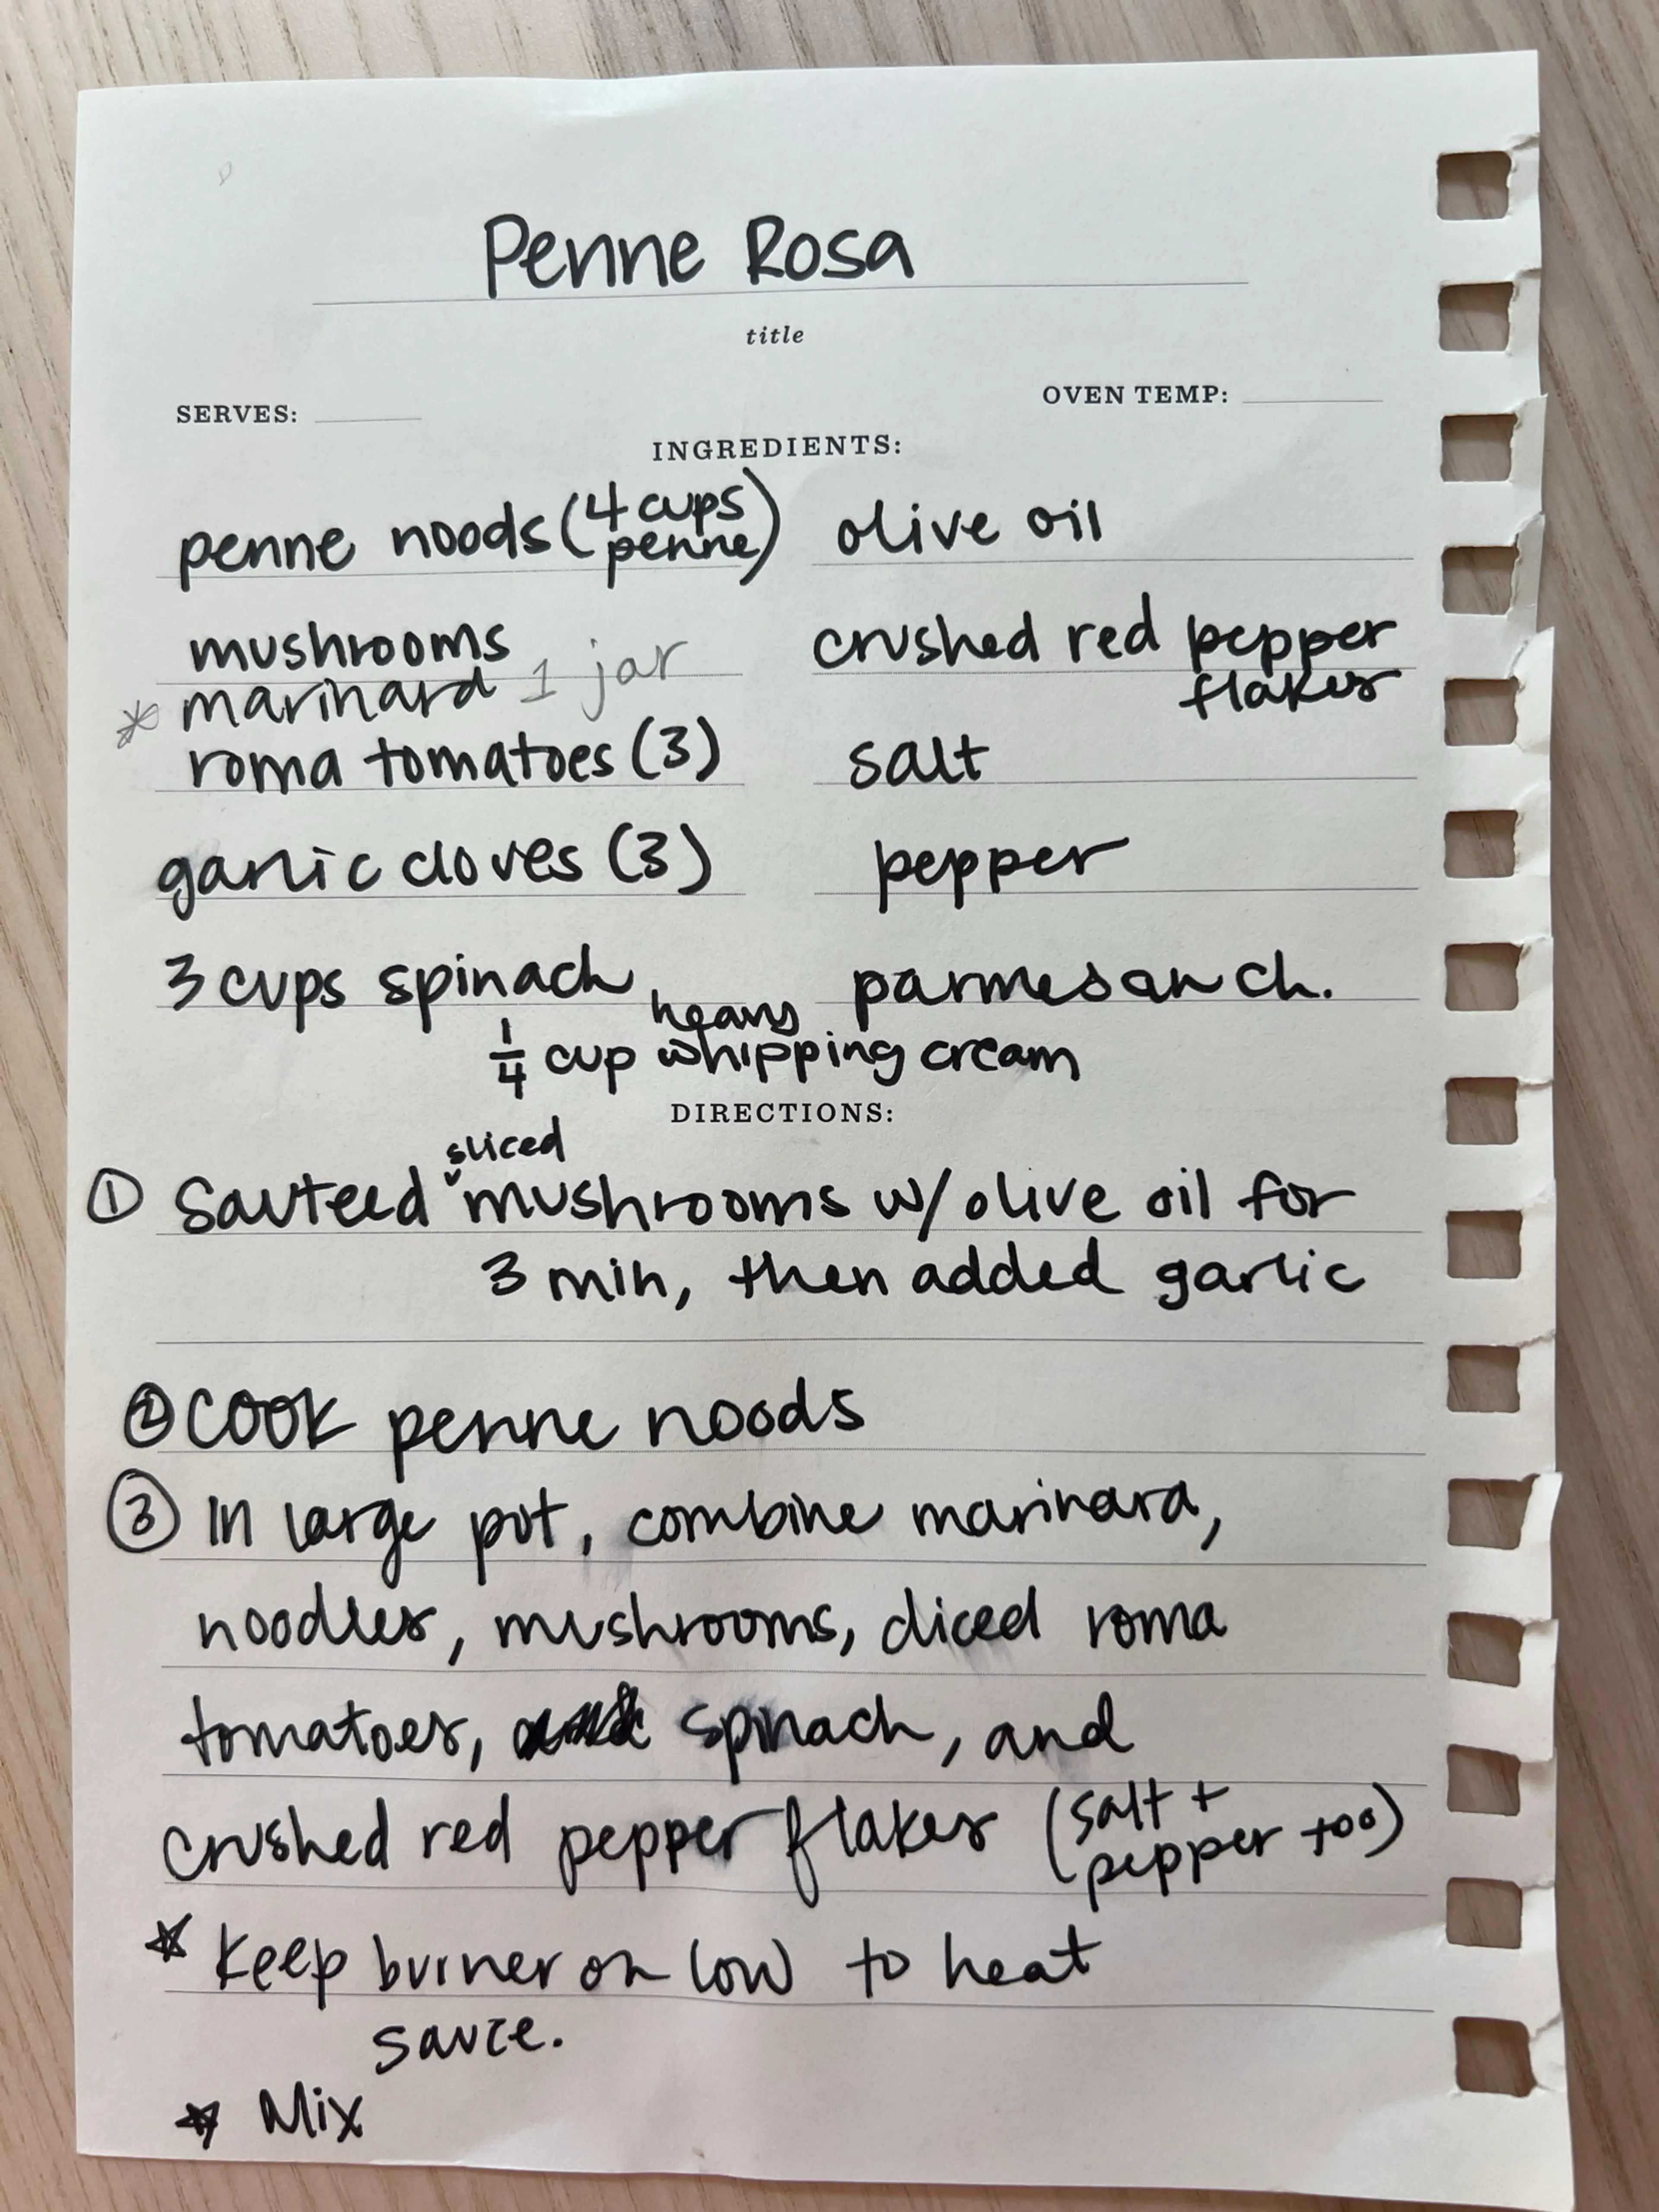 Penne Rosa
title
SERVES:
OVEN TEMP:
INGREDIENTS:
penne noods (4 cups penne)
olive oil
mushrooms
crushed red pepper flakes
* marinara 1 jar
roma tomatoes (3)
salt
garlic cloves (3)
pepper
3 cups spinach
parmesan ch.
1/4 cup heavy whipping cream
DIRECTIONS:
① Sauteed sliced mushrooms w/ olive oil for
3 min, then added garlic
② COOK penne noods
③ In large pot, combine marinara,
noodles, mushrooms, diced roma
tomatoes, spinach, and
crushed red pepper flakes (salt + pepper too)
☆ Keep burner on low to heat
sauce.
☆ Mix